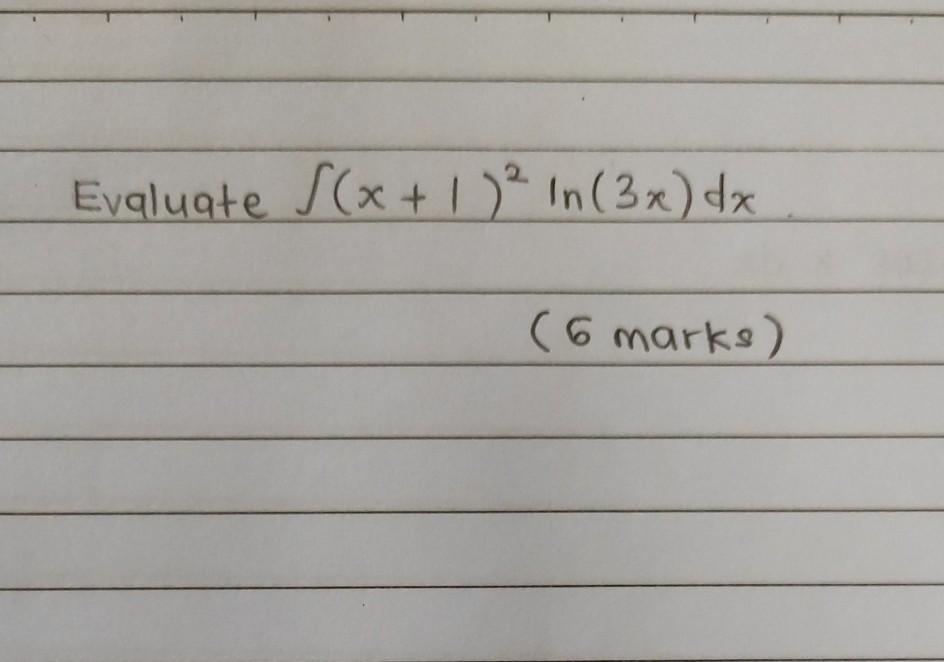 Evaluate ∫(x + 1)² ln(3x) dx.
(6 marks)